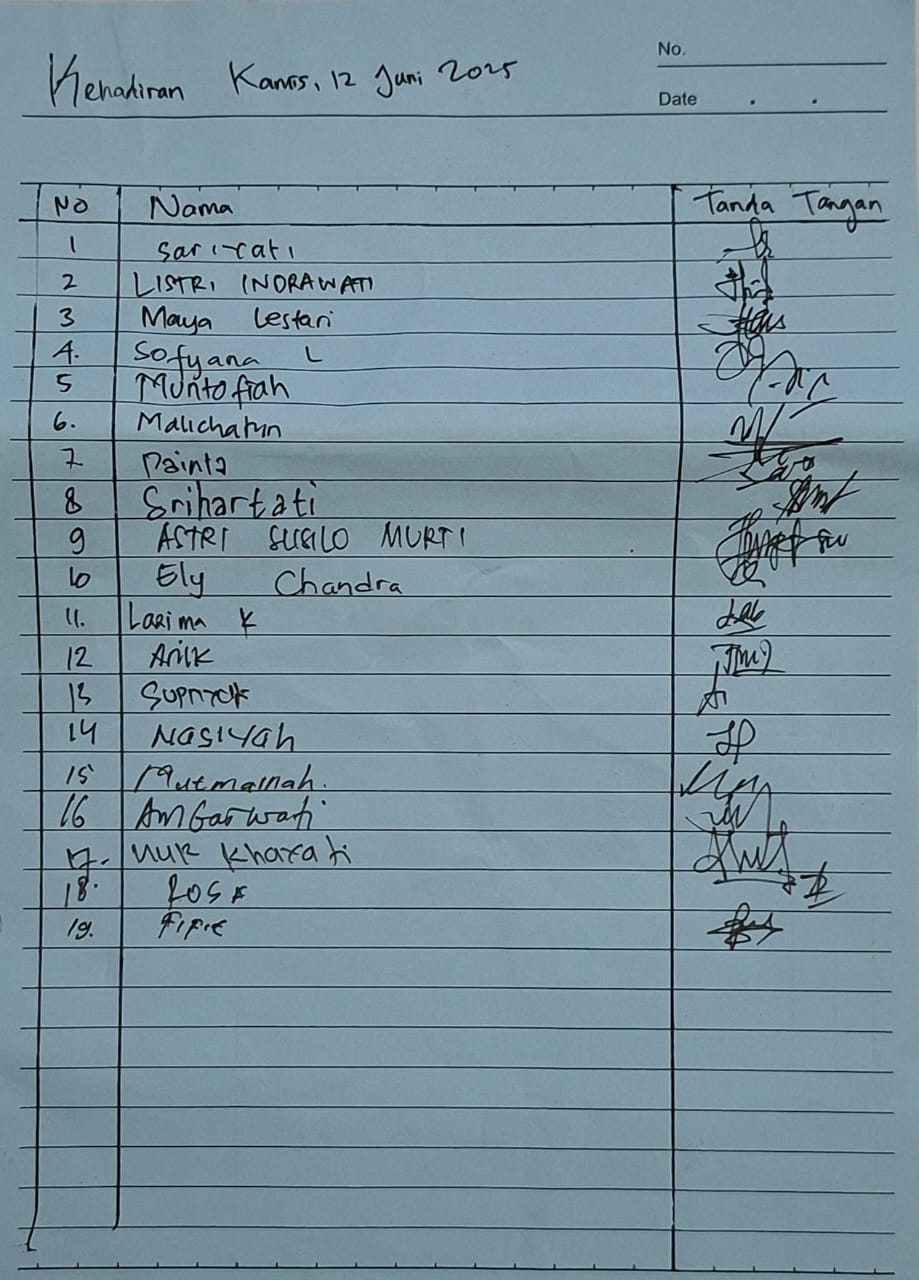 No.
Kehadiran Kamis, 12 Juni 2025
Date . .
NO Nama Tanda Tangan
1 Sari-rati
2 LISTRI INDRAWATI
3 Maya Lestari
4. Sofyana L
5 Muntofiah
6. Malichatun
7 Painta
8 Srihartati
9 ASTRI SUSILO MURTI
10 Ely Chandra
11. Lasima K
12 Anik
13
14 Nasiyah
15 Mutmainah.
16 Ambarwati
17. NUR Khayati
18. ROSA
19. FIFIE